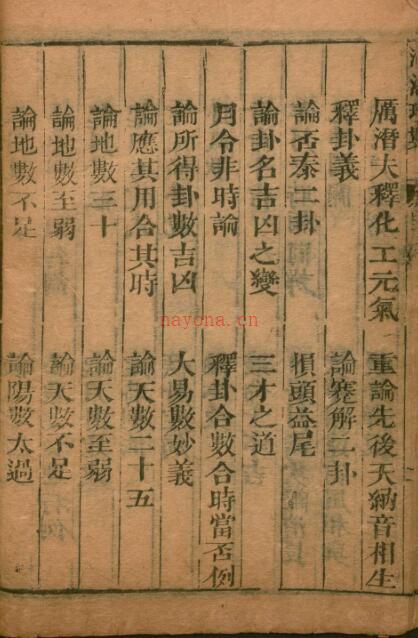 厲潛夫釋化工元氣　重論先後天納音相生
釋卦義　論蹇解二卦
論否泰二卦　損頭益尾
論卦名吉凶之變　三才之道
月令非時論　釋卦合數合時當否例
論所得卦數吉凶　大易數妙義
論應其用合其時　論天數二十五
論地數三十　論天數至弱
論地數至弱　論天數不足
論地數不足　論陽數太過
nayona.cn